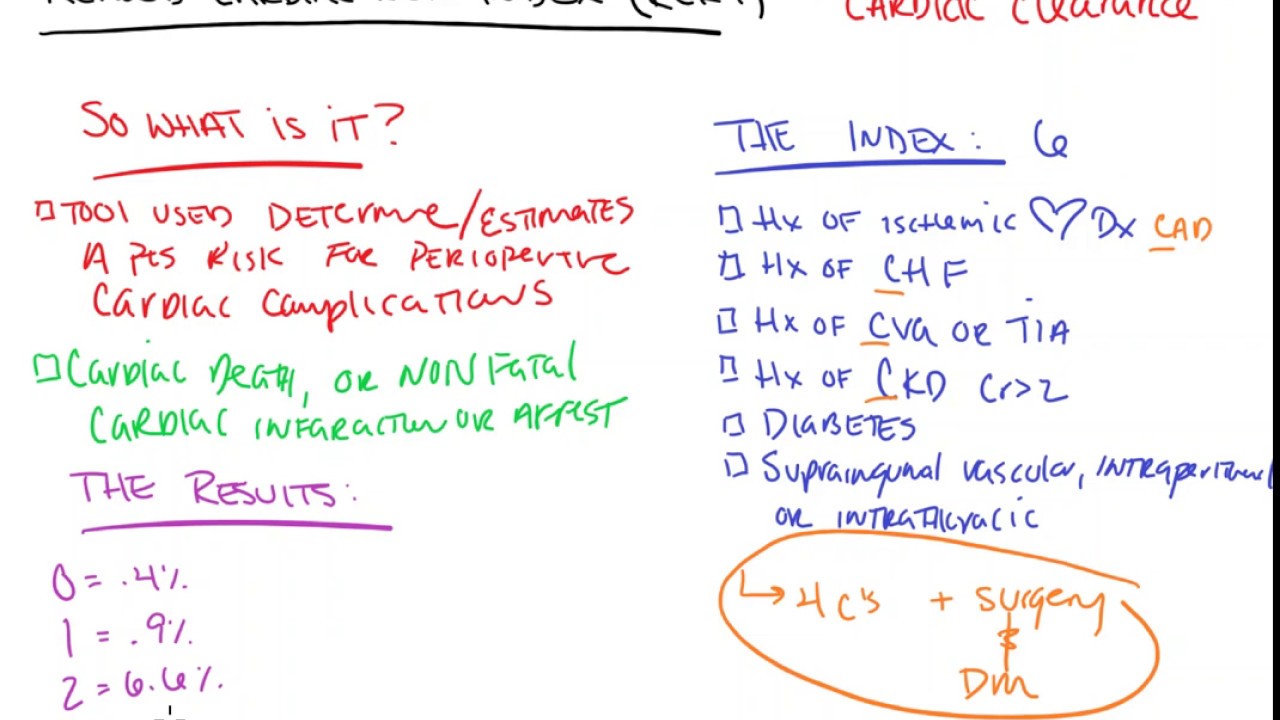 REVISED CARDIAC RISK INDEX (RCRI)
CARDIAC Clearance
SO WHAT is iT?
TOOl USED DETERMINE/ESTIMATES
A PTS RISK FOR PERIOPERTIVE
CARDIAC COMPLICATIONS
CARDIAC DEATH, OR NONFATAL
CARDIAC INFARCTION OR ARREST
THE RESULTS:
0 = .4%.
1 = .9%.
2 = 6.6%.
THE INDEX: 6
Hx OF ischemic ♡ Dx CAD
Hx OF CHF
Hx OF CVA OR TIA
Hx OF CKD Cr>2
DIABETES
Supraingunal vascular, INTRAperitoneal
OR INTRATHORACIC
↳ 4 C's + surgery
&
Dm